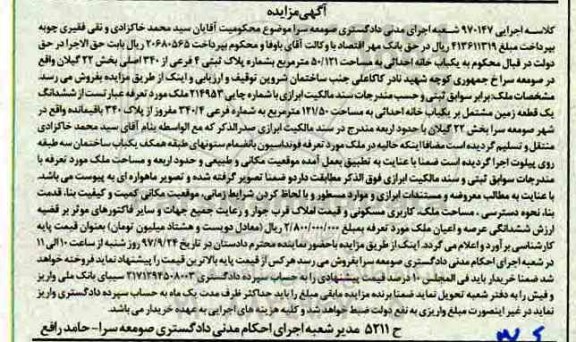 آگهی مزایده
کلاسه اجرایی ۹۷۰۱۴۷ شعبه اجرای مدنی دادگستری صومعه سرا موضوع محکومیت آقایان سید محمد خاکزادی و نقی فقیری چوبه
بپرداخت مبلغ ۴۱۳۶۱۱۳۱۹ ریال در حق بانک مهر اقتصاد با وکالت آقای باوفا و محکوم بپرداخت ۲۰۶۸۰۵۶۵ ریال بابت حق الاجرا در حق
دولت در قبال محکوم به یکباب خانه احداثی به مساحت ۵۰/۱۲۱ مترمربع بشماره پلاک ثبتی ۴ فرعی از ۳۴۰ اصلی بخش ۲۲ گیلان واقع
در صومعه سرا خ جمهوری کوچه شهید نادر کاکاعلی جنب ساختمان شروین توقیف و ارزیابی و اینک از طریق مزایده بفروش می رسد.
مشخصات ملک: برابر سوابق ثبتی و حسب مندرجات سند مالکیت ابرازی با شماره چاپی ۲۱۴۹۵۳ ملک مورد تعرفه عبارتست از ششدانگ
یک قطعه زمین مشتمل بر یکباب خانه احداثی به مساحت ۱۲۱/۵۰ مترمربع به شماره فرعی ۳۴۰/۴ مفروز از پلاک ۳۴۰ باقیمانده واقع در
شهر صومعه سرا بخش ۲۲ گیلان با حدود اربعه مندرج در سند مالکیت ابرازی صدرالذکر که مع الواسطه بنام آقای سید محمد خاکزادی
منتقل و تسلیم گردیده است مضافا اینکه حالیه در ملک مورد تعرفه فونداسیون بانضمام ستونهای طبقه همکف یکباب ساختمان سه طبقه
روی پیلوت اجرا گردیده است ضمنا با عنایت به تطبیق بعمل آمده موقعیت مکانی و طبیعی و حدود اربعه و مساحت ملک مورد تعرفه با
مندرجات سوابق ثبتی و سند مالکیت ابرازی فوق الذکر مطابقت دارد و ضمنا تصویر گرفته شده و تصویر ماهواره ای به پیوست می باشد.
با عنایت به مطالب معروضه و مستندات ابرازی و موارد مسطور و با لحاظ کردن شرایط زمانی، موقعیت مکانی کمیت و کیفیت بنا، قدمت
بنا، نحوه دسترسی، مساحت ملک، کاربری مسکونی و قیمت املاک قرب جوار و رعایت جمیع جهات و سایر فاکتورهای موثر بر قضیه
ارزش ششدانگی عرصه و اعیان ملک مورد تعرفه بمبلغ ۲/۸۰۰/۰۰۰/۰۰۰ ریال (معادل دویست و هشتاد میلیون تومان) بعنوان قیمت پایه
کارشناسی برآورد و اعلام می گردد. اینک از طریق مزایده باحضور نماینده محترم دادستان در تاریخ ۹۷/۹/۲۴ روز شنبه از ساعت ۱۰ الی ۱۱
در شعبه اجرای احکام مدنی دادگستری صومعه سرا بفروش می رسد هرکس از قیمت پایه بالاترین قیمت را پیشنهاد نماید فروخته خواهد
شد ضمنا خریدار باید فی المجلس ۱۰ درصد قیمت پیشنهادی را به حساب سپرده دادگستری ۲۱۷۱۲۹۴۵۰۸۰۰۳ سیبای بانک ملی واریز
و فیش را به دفتر شعبه تحویل نماید ضمنا برنده مزایده مابقی مبلغ را باید حداکثر ظرف مدت یک ماه به حساب سپرده دادگستری واریز
نماید در غیر اینصورت مبلغ واریزی به نفع دولت ضبط خواهد شد و کلیه هزینه های اجرایی به عهده خریدار می باشد.
ح ۵۲۱۱ مدیر شعبه اجرای احکام مدنی دادگستری صومعه سرا- حامد رافع